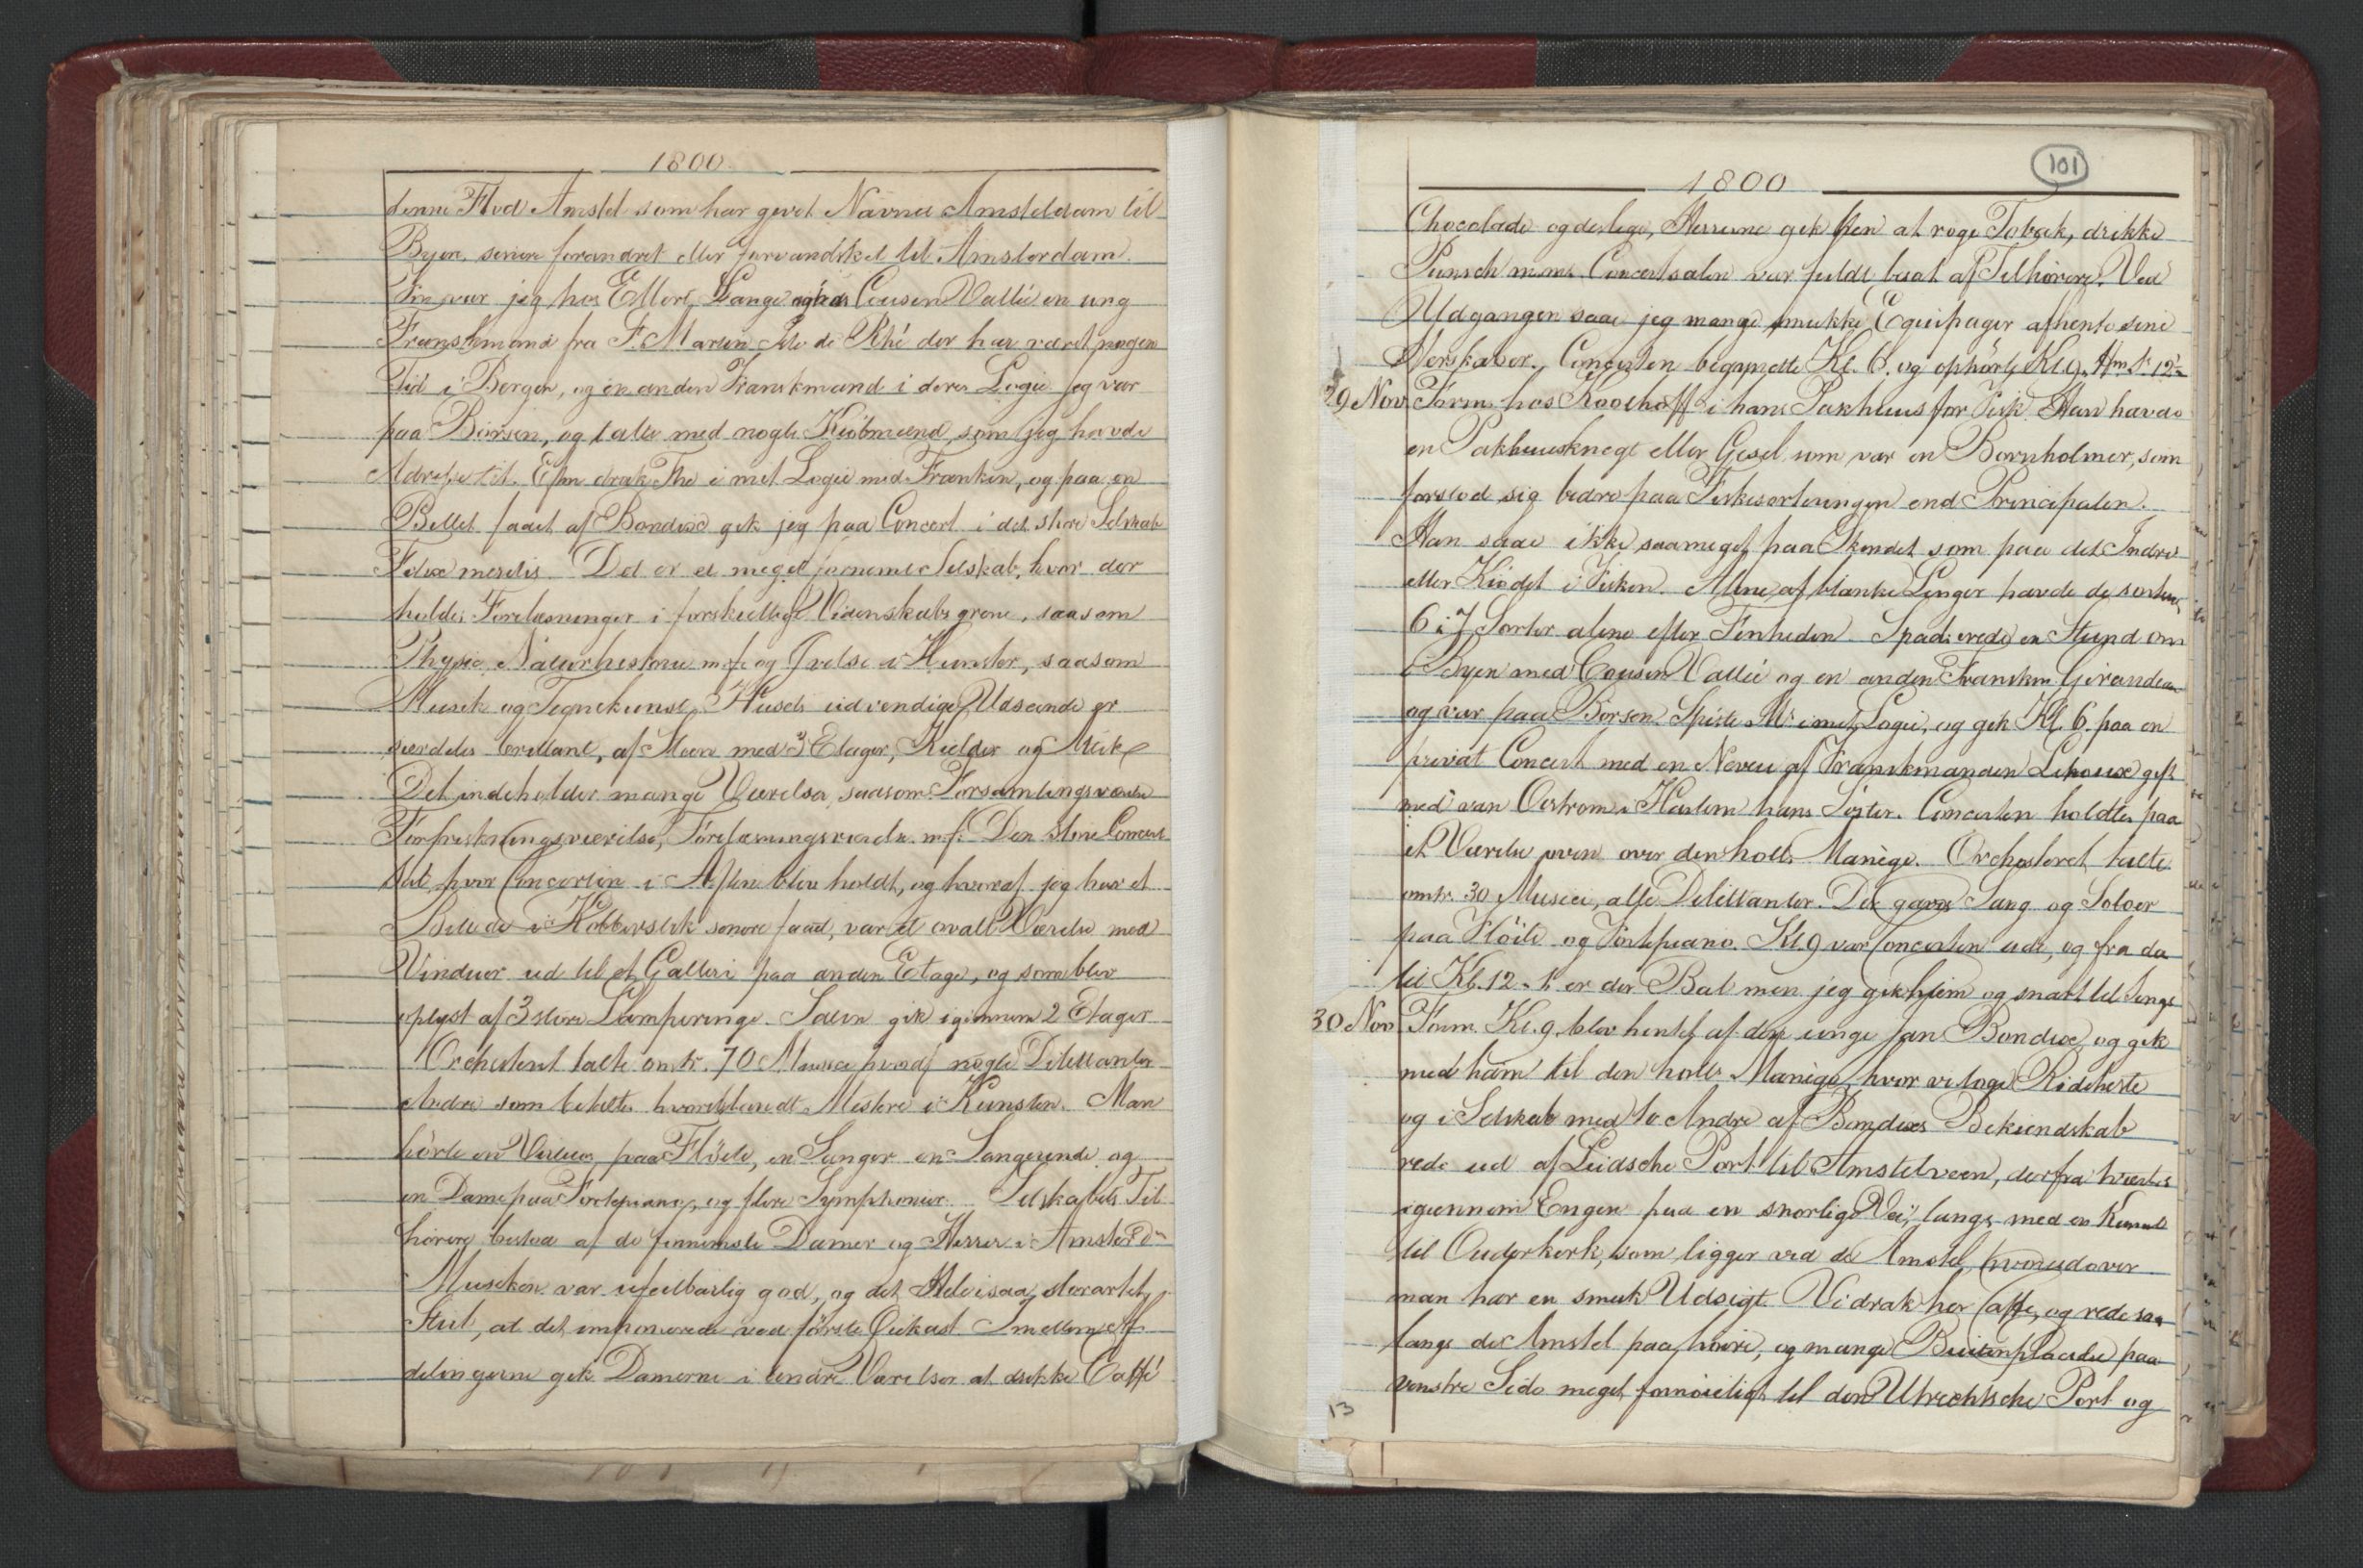 1800
denne Flod Amstel som har givet Navnet Amsteldam til
Byen, senere forandret eller forvandsket til Amsterdam.
Fm var jeg hos Ellert, Lange og hos Cousin Vallée en ung
Franskmand fra S. Martin Isle de Rhé der har været nogen
Tid i Bergen, og en anden Franskmand i deres Logie. Jeg var
paa Börsen, og talte med nogle Kiöbmænd, som jeg havde
Adresse til. Efm drak The i mit Logie med Franken, og paa en
Billet faaet af Bondix gik jeg paa Concert i det store Selskab
Felix meritis. Det er et meget fornemt Selskab, hvor der
holdes Forelæsninger i forskiellige Videnskabsgrene, saasom
Physic, Naturhistorie m.fl. og Övelse i Kunster, saasom
Musik og Tegnekunst. Husets udvendige Udseende er
særdeles brillant, af Steen med 3 Etager, Kielder og
Det indeholder mange Værelser, saasom Forsamlingsværelse
Forfriskningsværelse, Forelæsningsværelse m.fl. Den store Concert
Sal hvor Concerten i Aften blev holdt, og hvoraf jeg har et
Billede i Kobberstik senere faaet, var et ovalt Værelse med
Vinduer ud til et Galleri paa anden Etage, og som blev
oplyst af 3 store Lamperinge. Salen gik igiennem 2 Etager
Orchestret talte omtr. 70 Musici hvoraf nogle Dilettanter
Andre som betalte hvoriblandt Mestere i Kunsten. Man
hörte en Virtuos paa Flöite, en Sanger en Sangerinde og
en Dame paa Fortepiano, og flere Symphonier. Selskabets Til-
hörere bestod af de fornemste Damer og Herrer i Amsterdm
Musikken var ufeilbarlig god, og det Hele i saa storartet
Stiil, at det imponerede ved förste Öiekast. Imellem Af-
delingerne gik Damerne i andre Værelser at drikke Caffé
101
1800
Chocolade og deslige, Herrerne gik hen at röge Tobak, drikke
Punsch m.m. Concertsalen var fuldt besat af Tilhörere. Ved
Udgangen saae jeg mange smukke Equipager afhente sine
Herskaber. Concerten begyndte Kl. 6. og ophörte Kl. 9.
29 Nov Form. hos Kooshoff i hans Pakhuus for Fisk. Han havde
en Pakhuusknegt eller Gesel som var en Bornholmer, som
forstod sig bedre paa Fiskesorteringen end Principalen.
Han saae ikke saameget paa Skindet som paa det Indre
eller Kiödet i Fisken. Alene af blanke Lenger havde de
6 à 7 Sorter alene efter Finheden. Spadserede en Stund om
i Byen med Cousin Vallée og en anden Franskm Girandeau
og var paa Börsen. Spiste Md i mit Logie, og gik Kl. 6 paa en
privat Concert med en Neveu af Franskmanden Lehoux gift
med van Oestrom i Harlem hans Söster. Concerten holdtes paa
et Værelse oven over den holl. Manège. Orchestret talte
omtr. 30 Musici, alle Dilettanter. Der gaves Sang og Soloer
paa Flöite og Fortepiano. Kl. 9 var Concerten ude, og fra da
til Kl. 12 - 1 er der Bal men jeg gik hjem og snart til Sengs
30 Nov Form. Kl. 9. blev hentet af den unge Jan Bondix, og gik
med ham til den holl. Manège, hvor vi toge Rideheste
og i Selskab med to Andre af Bondixs Bekiendskab
rede ud af Leidsche Port til Amstelveen, derfra tværts
igiennem Engen paa en snorlige Vei, langs med en Kanal
til Ouderkerk, som ligger ved de Amstel, hvorudover
man har en smuk Udsigt. Vi drak her Caffe, og rede saa
langs de Amstel paa höire, og mange Buitenplaatse paa
venstre Side meget fornöieligt til den Utrechtsche Port og
13